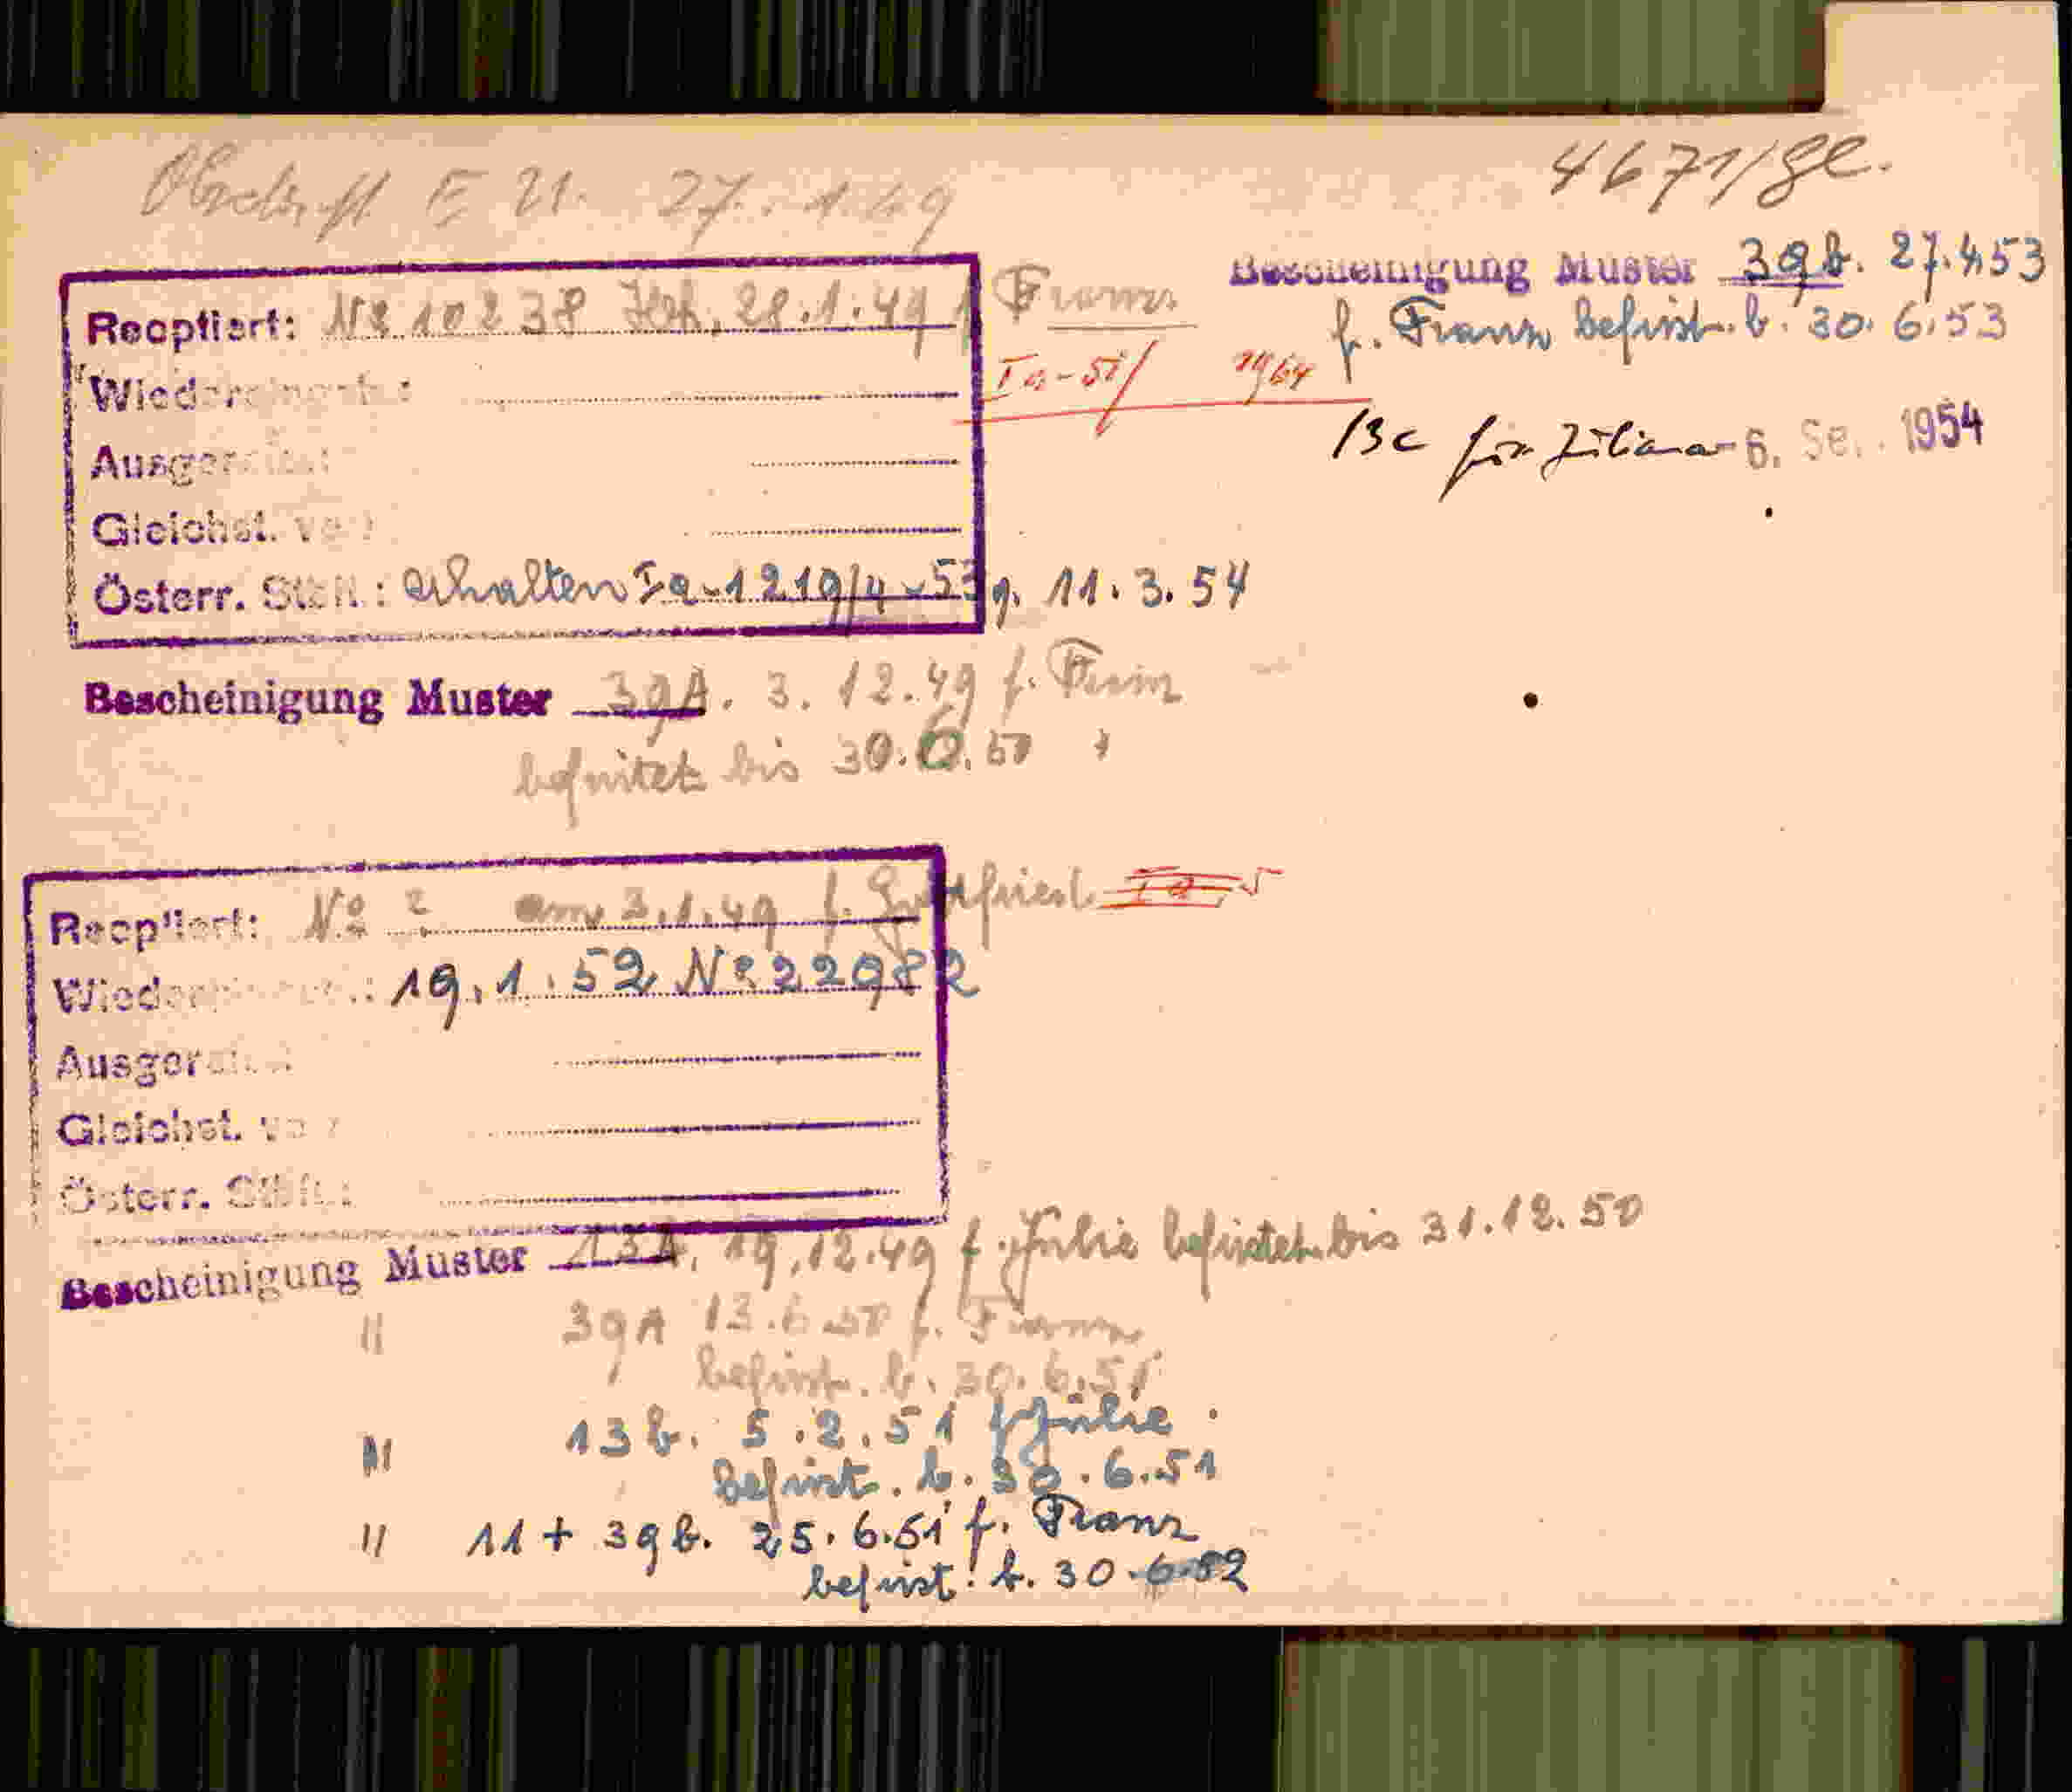 E 21. 27. 1.49
4671/
Reoptiert: № 10238 28.1.49 f. Franz
Ia-51/
Österr. Stbft.: erhalten Ia-1219/4-53 g. 11.3.54
Bescheinigung Muster 39A. 3. 12.49 f. Franz
befristet bis 30.6.50
Bescheinigung Muster 39b. 27.4.53
f. Franz befrist. b. 30.6.53
13c für Juliana 6. 1954
Reoptiert: № 2 am 3.1.49 f. Gottfried
19.1.52 № 22982
Gleichst.
Österr. Stbft.:
Bescheinigung Muster 13A. 19.12.49 f. Julie befristet bis 31.12.50
" 39A 13.6.50 f. Franz
befrist. b. 30.6.51
" 13b. 5.2.51 f Julie
befrist. b. 30.6.51
" 11 + 39b. 25.6.51 f. Franz
befrist. b. 30.6.52